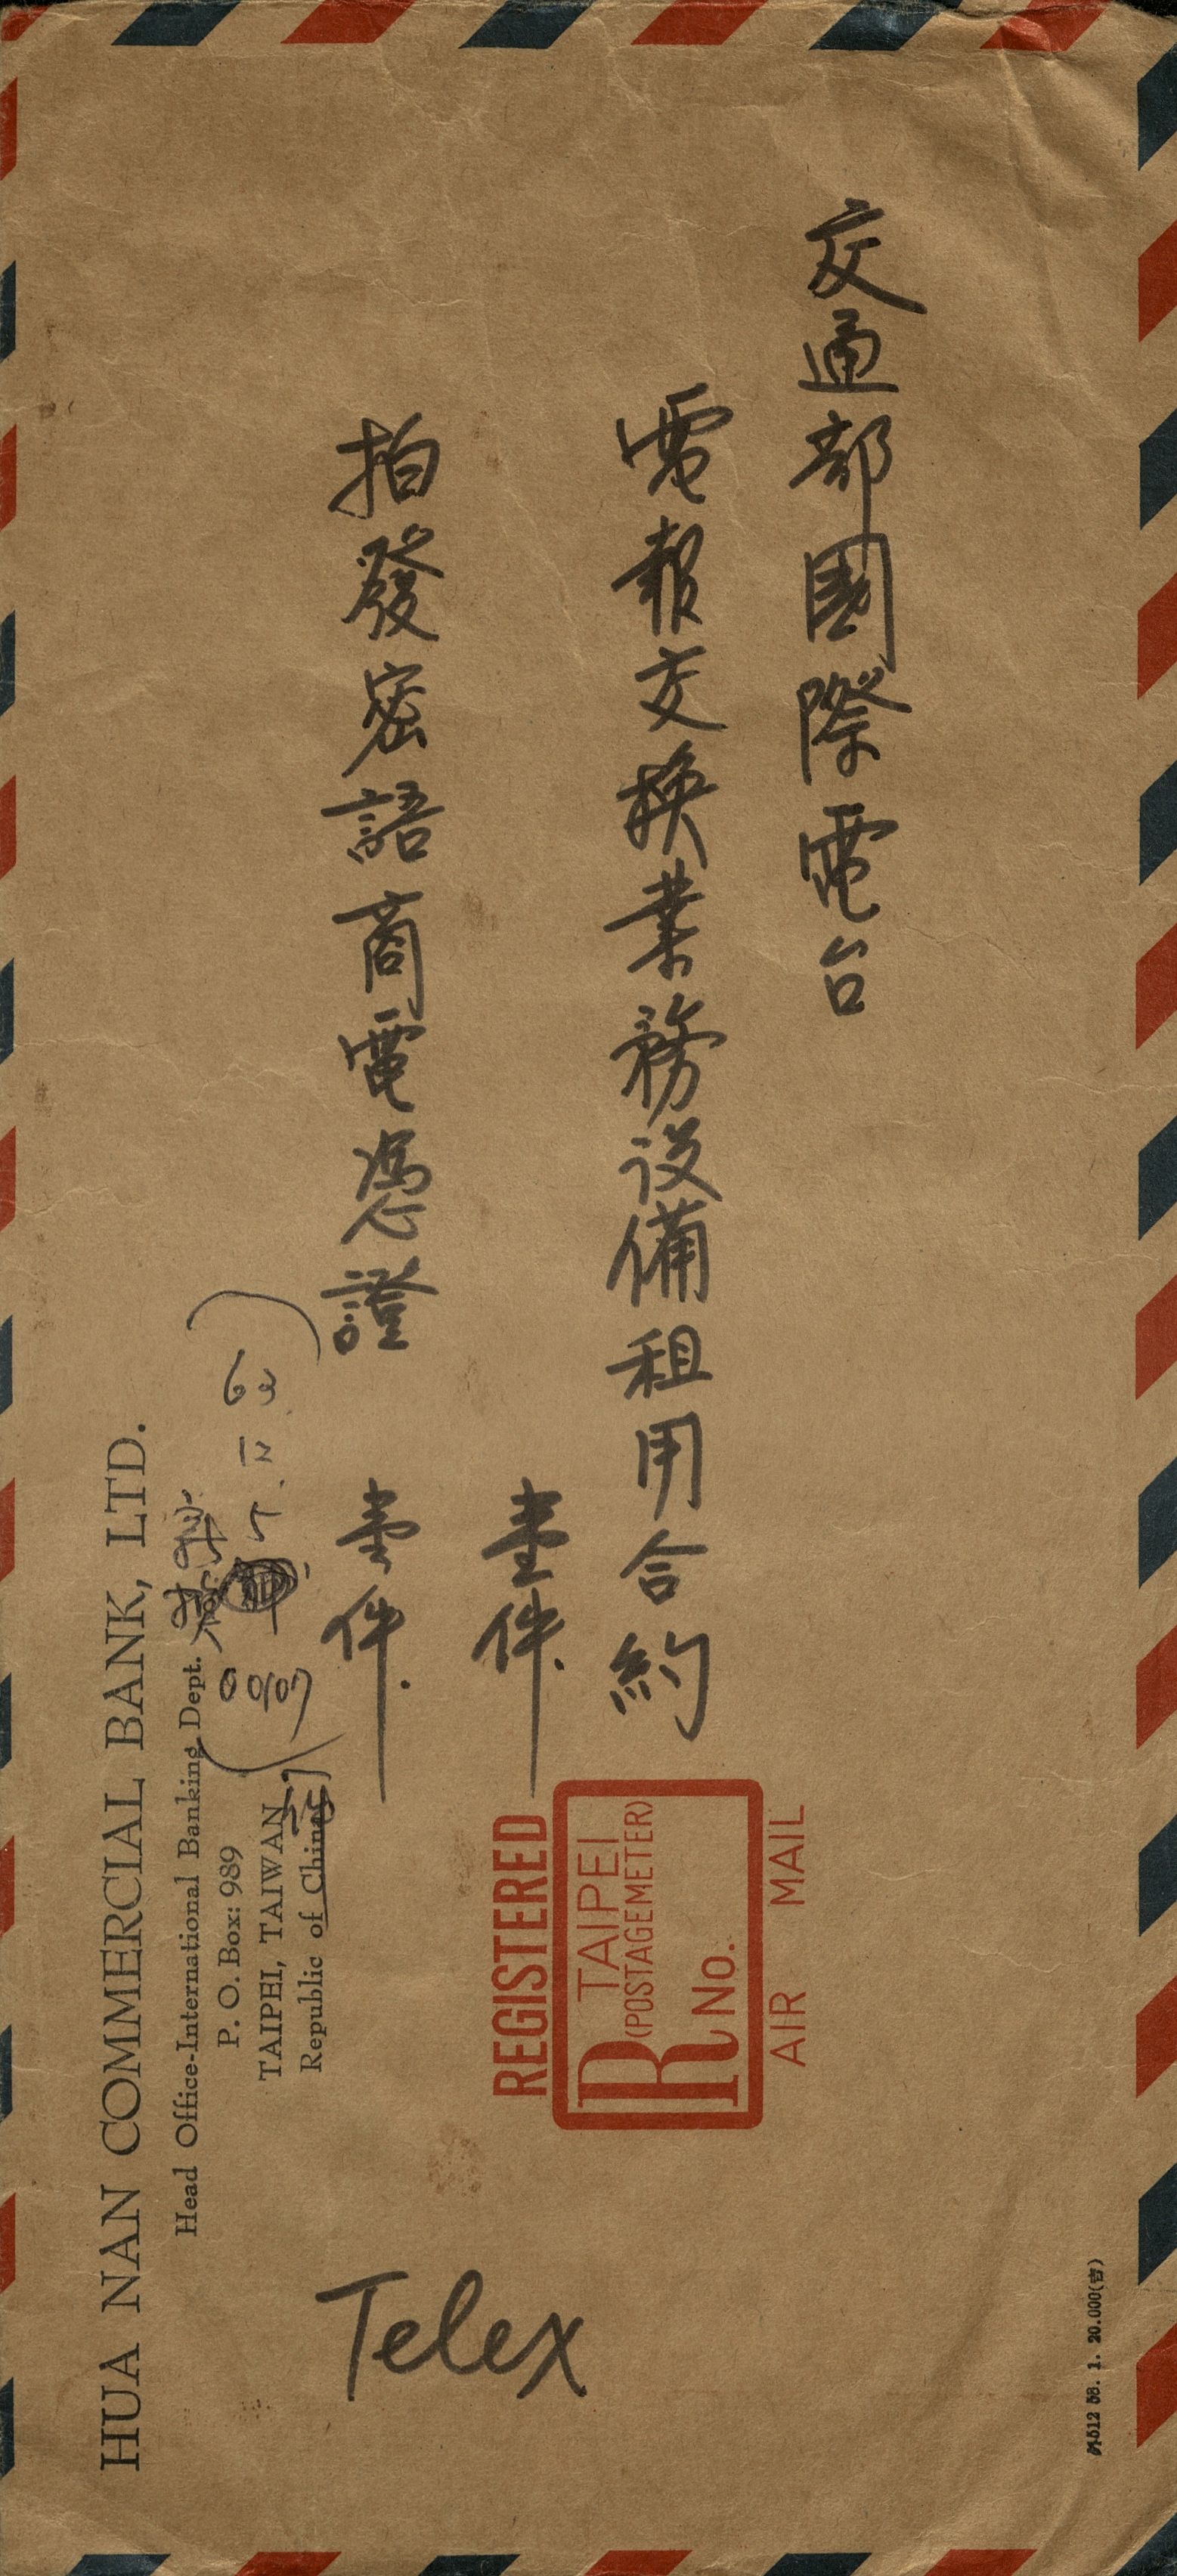 交通部國際電台
電報交換業務設備租用合約
壹件.
拍發密語商電憑證
壹件.
63.12.5.
Telex
HUA NAN COMMERCIAL BANK, LTD.
Head Office-International Banking Dept.
P. O. Box: 989
TAIPEI, TAIWAN
Republic of China
REGISTERED
R TAIPEI
(POSTAGEMETER)
No.
AIR MAIL
外512 58. 1. 20.000(吉)